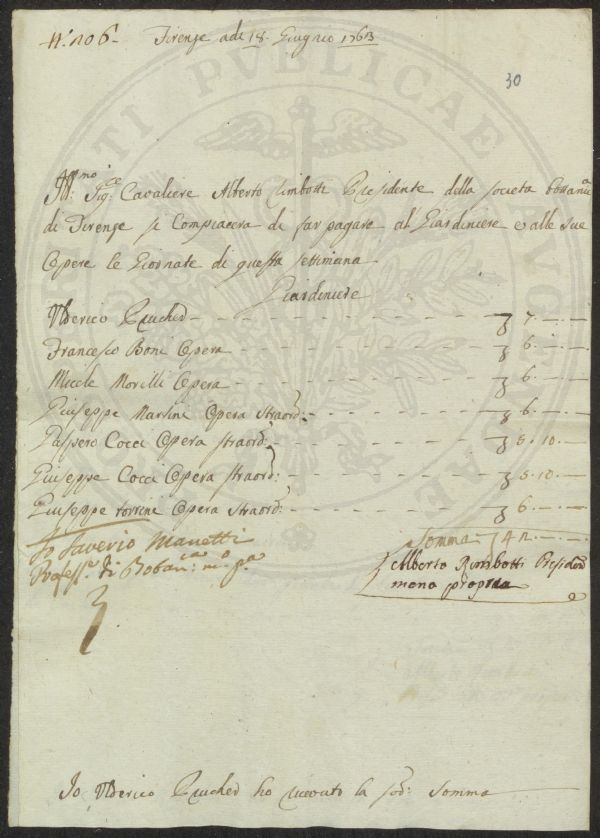 N.º 106 Firenze adi 18 Giugno 1763
30
Ill:mo Sig:re Cavaliere Alberto Rimbotti Presidente della Società Bottanica
di Firenze si Compiacerà di far pagare al Giardiniere e alle sue
Opere le Giornate di questa settimana
Giardiniere
Ulderico Prucher 7
Francesco Boni Opera 6
Micele Morelli Opera 6
Giuseppe Martini Opera straord: 6
Gaspero Cocci Opera straord: 5 10
Giuseppe Cocci Opera straord: 5 10
Giuseppe Torrini Opera straord: 6
Somma 42
Io Saverio Manetti
Profess:re di Botan:ca m:o p:a
Alberto Rimbotti Presiden
mano propria
Io Ulderico Prucher ho ricevuto la sod: Somma
PUBLICAE